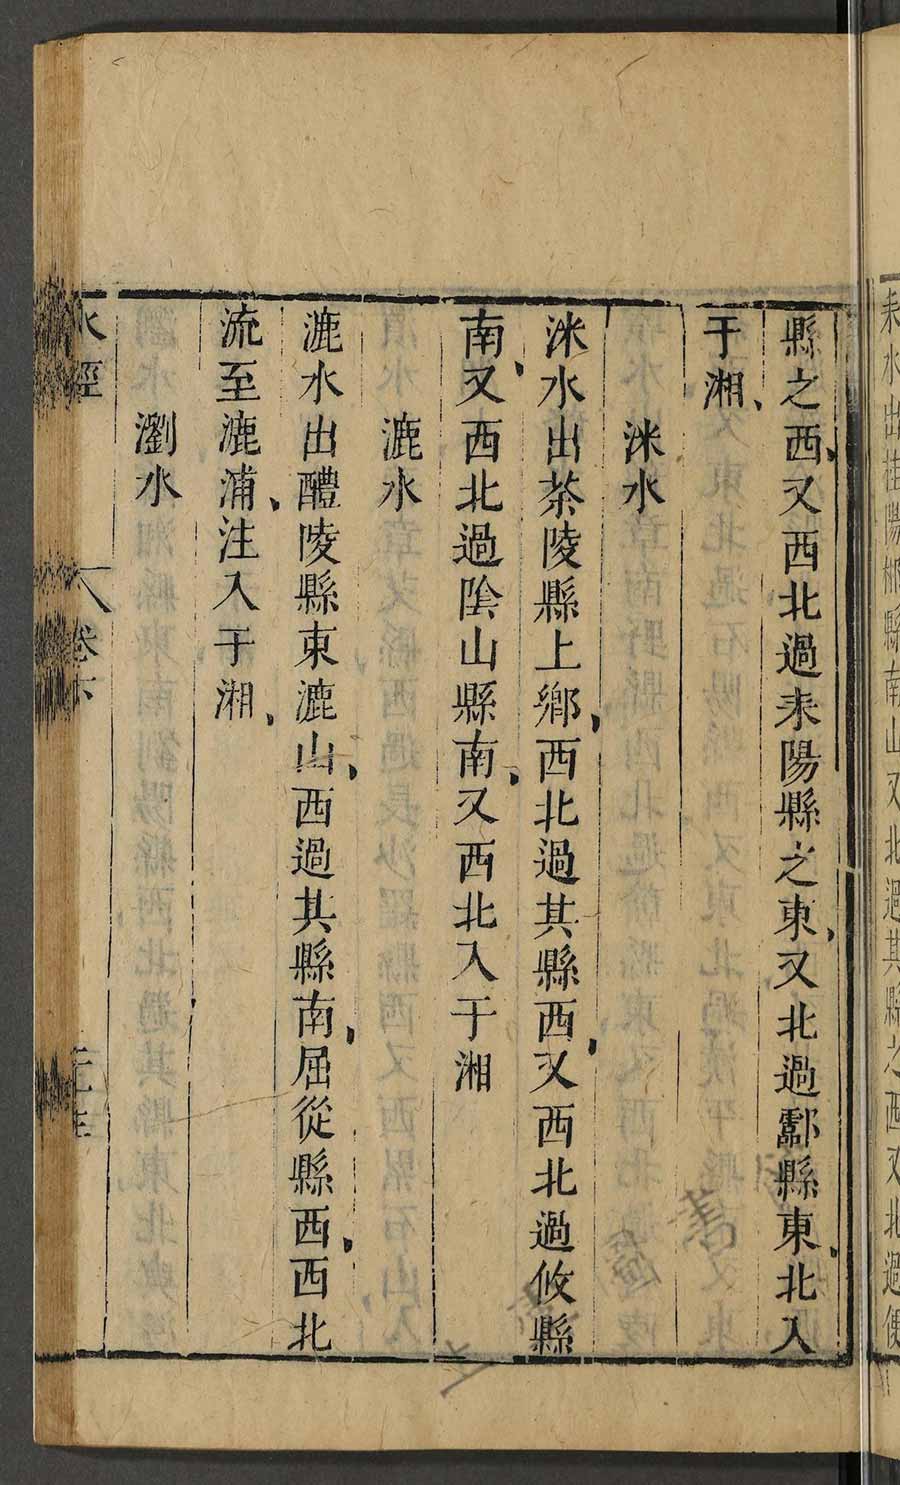 耒水出桂陽郴縣南山又北過其縣之西又北過便
縣之西又西北過耒陽縣之東又北過酃縣東北入
于湘
洣水
洣水出茶陵縣上鄉西北過其縣西又西北過攸縣
南又西北過陰山縣南又西北入于湘
漉水
漉水出醴陵縣東漉山西過其縣南屈從縣西西北
流至漉浦注入于湘
瀏水
水經
卷下